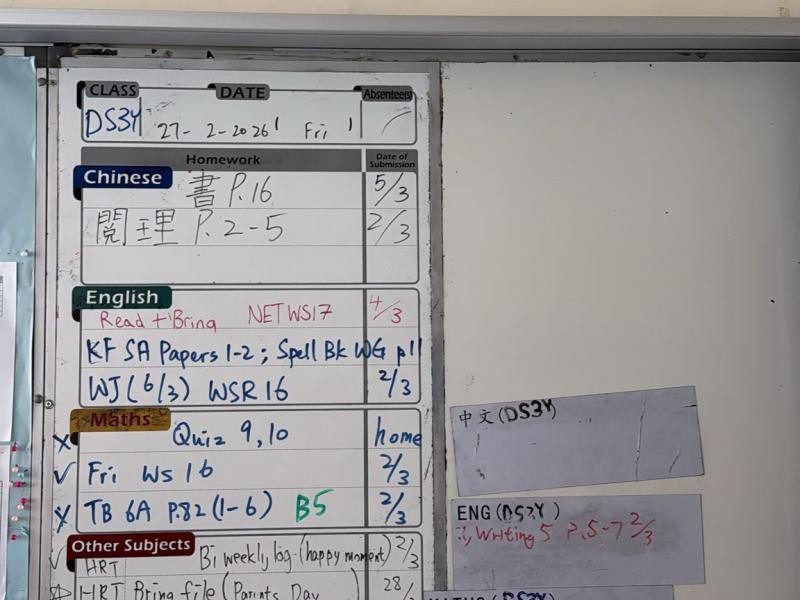 CLASS DATE Absentee(s)
DS3Y 27-2-2026 Fri
Homework Date of Submission
Chinese 書 P.16 5/3
閱理 P.2-5 2/3
English
Read + Bring NETWS17 4/3
KF SA Papers 1-2; Spell Bk WG p11
WJ (6/3) WSR 16 2/3
Maths Quiz 9,10 home
Fri Ws 16 2/3
TB 6A P.82 (1-6) B5 2/3
Other Subjects
HRT Bi weekly log (happy moment) 2/3
HRT Bring file (Parents Day 28/
中文(DS3Y)
ENG (DS3Y)
Writing 5 P.5-7 2/3
(DS3Y)